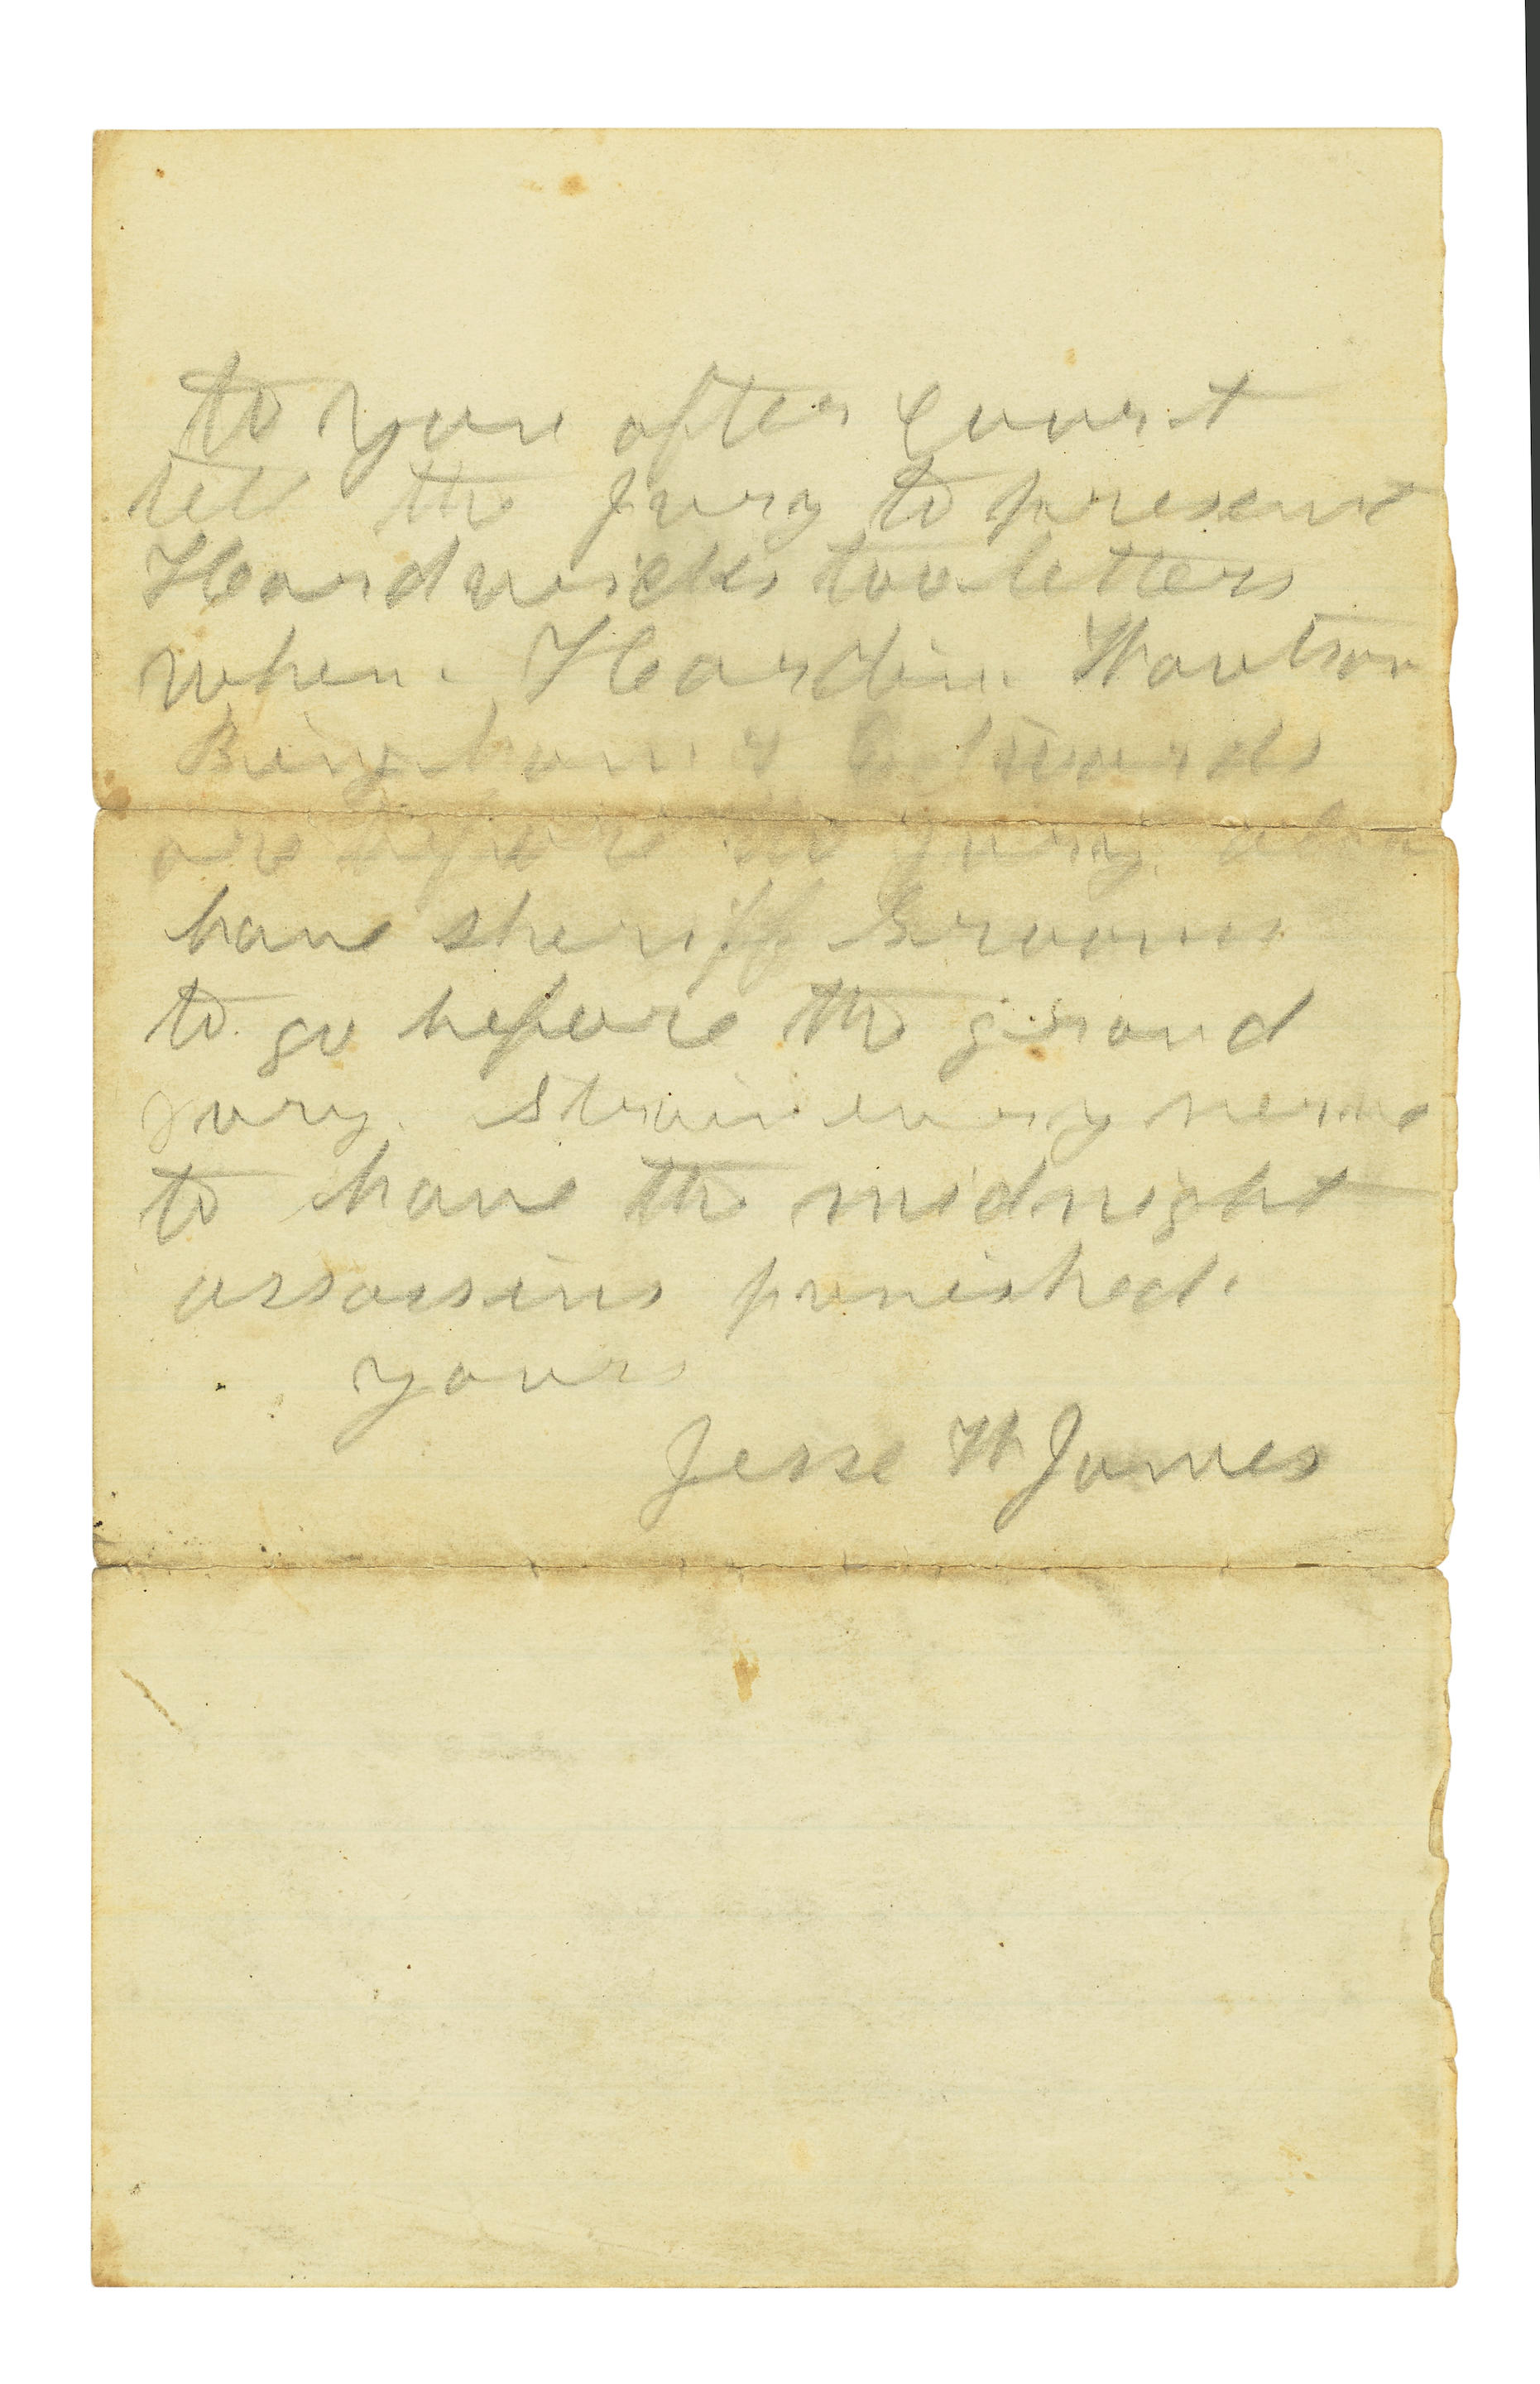 to you after Court
tell the jury to present
Hardwicks two letters
when Hardin Watson
Bingham & Edwards
are before the jury. also
have sheriff Grooms
to go before the grand
jury. Strain every nerve
to have the midnight
assassins punished.
yours
Jesse W James